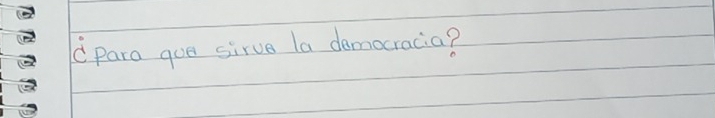 ¿Para que sirve la democracia?